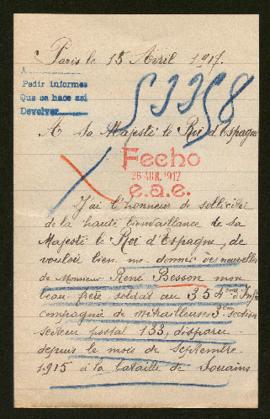 Paris le 15 Avril 1917.
A
Pedir informes
Que se hace así
Devolver
53358
A Sa Majesté le Roi d'Espagne
Fecho
26 ABR. 1917
e.a.e.
J'ai l'honneur de solliciter
de la haute bienveillance de Sa
Majesté le Roi d'Espagne, de
vouloir bien me donner des nouvelles
de Monsieur René Besson mon
beau frère soldat au 354e Inf
compagnie de mitrailleuses 3e section
secteur postal 133, disparu
depuis le mois de Septembre
1915 à la bataille de Souains